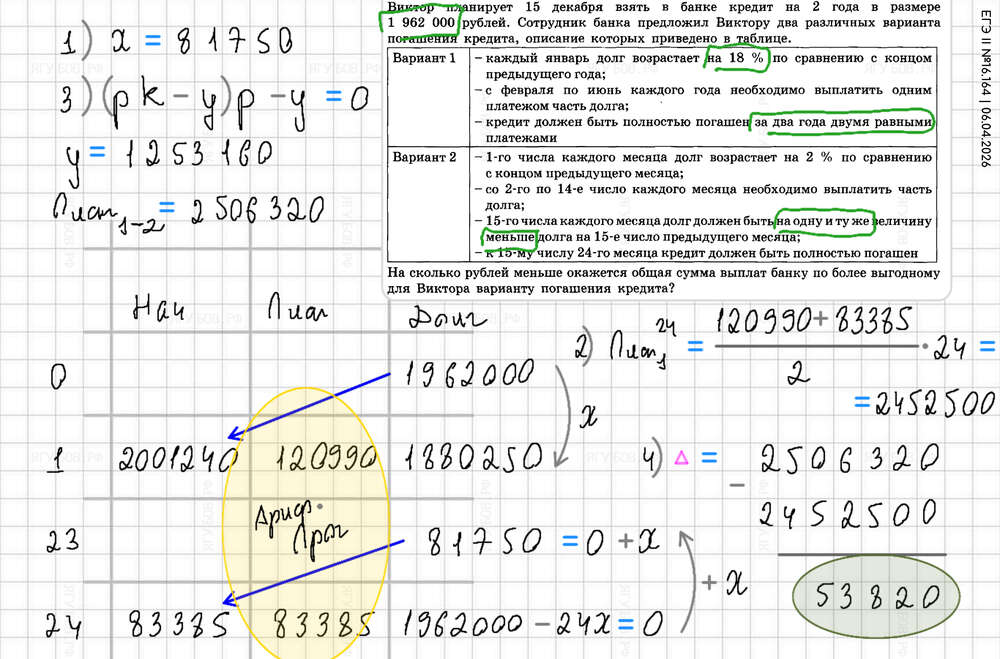 Виктор планирует 15 декабря взять в банке кредит на 2 года в размере
1 962 000 рублей. Сотрудник банка предложил Виктору два различных варианта
погашения кредита, описание которых приведено в таблице.
Вариант 1
– каждый январь долг возрастает на 18 % по сравнению с концом
предыдущего года;
– с февраля по июнь каждого года необходимо выплатить одним
платежом часть долга;
– кредит должен быть полностью погашен за два года двумя равными
платежами
Вариант 2
– 1-го числа каждого месяца долг возрастает на 2 % по сравнению
с концом предыдущего месяца;
– со 2-го по 14-е число каждого месяца необходимо выплатить часть
долга;
– 15-го числа каждого месяца долг должен быть на одну и ту же величину
меньше долга на 15-е число предыдущего месяца;
– к 15-му числу 24-го месяца кредит должен быть полностью погашен
На сколько рублей меньше окажется общая сумма выплат банку по более выгодному
для Виктора варианту погашения кредита?
ЕГЭ II №16.164 | 06.04.2026
1) x = 81750
3) (pk – y)p – y = 0
y = 1253160
Плат 1–2 = 2506320
Нач Плат Долг
0 1962000
x
1 2001240 120990 1880250
Ариф.
Прог
23 81750 = 0 + x
+ x
24 83385 83385 1962000 – 24x = 0
2) Плат 1 24 = (120990 + 83385) / 2 · 24 =
= 2452500
4) Δ = 2506320
– 2452500
53820